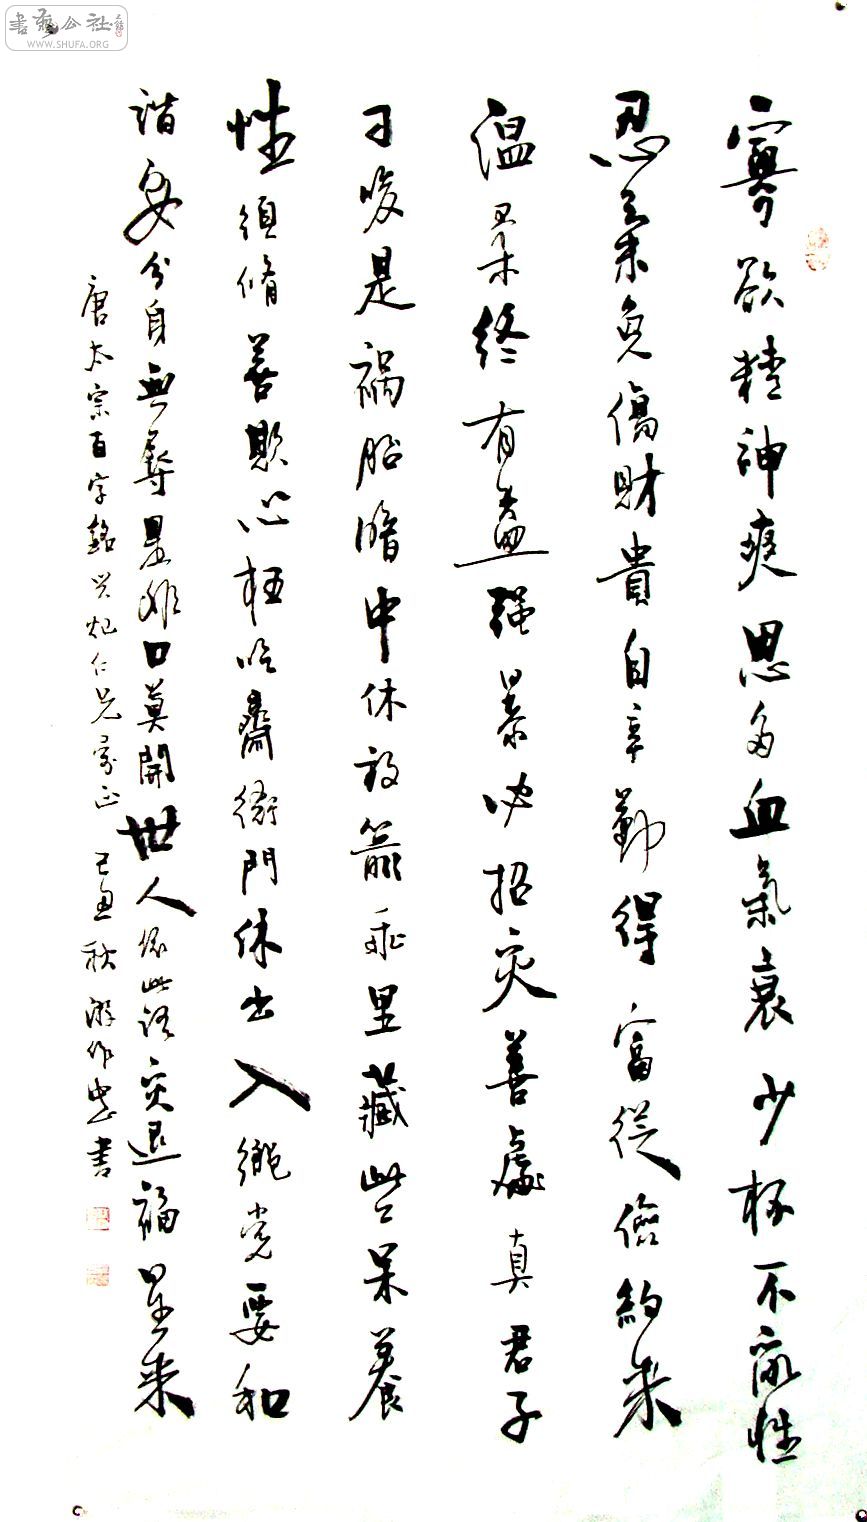 書藝公社
WWW.SHUFA.ORG
寡欲精神爽思多血氣衰少杯不亂性
忍氣免傷財貴自辛勤得富從儉約来
温柔終有益强暴必招灾善處真君子
刁唆是禍胎暗中休放箭乖里藏些呆養
性須脩善欺心枉吃齋衙門休出入鄉党要和
諧安分身無辱是非口莫開世人依此語灾退福星来
唐太宗百字銘 兴灿仁兄 正 己丑秋 游作忠書